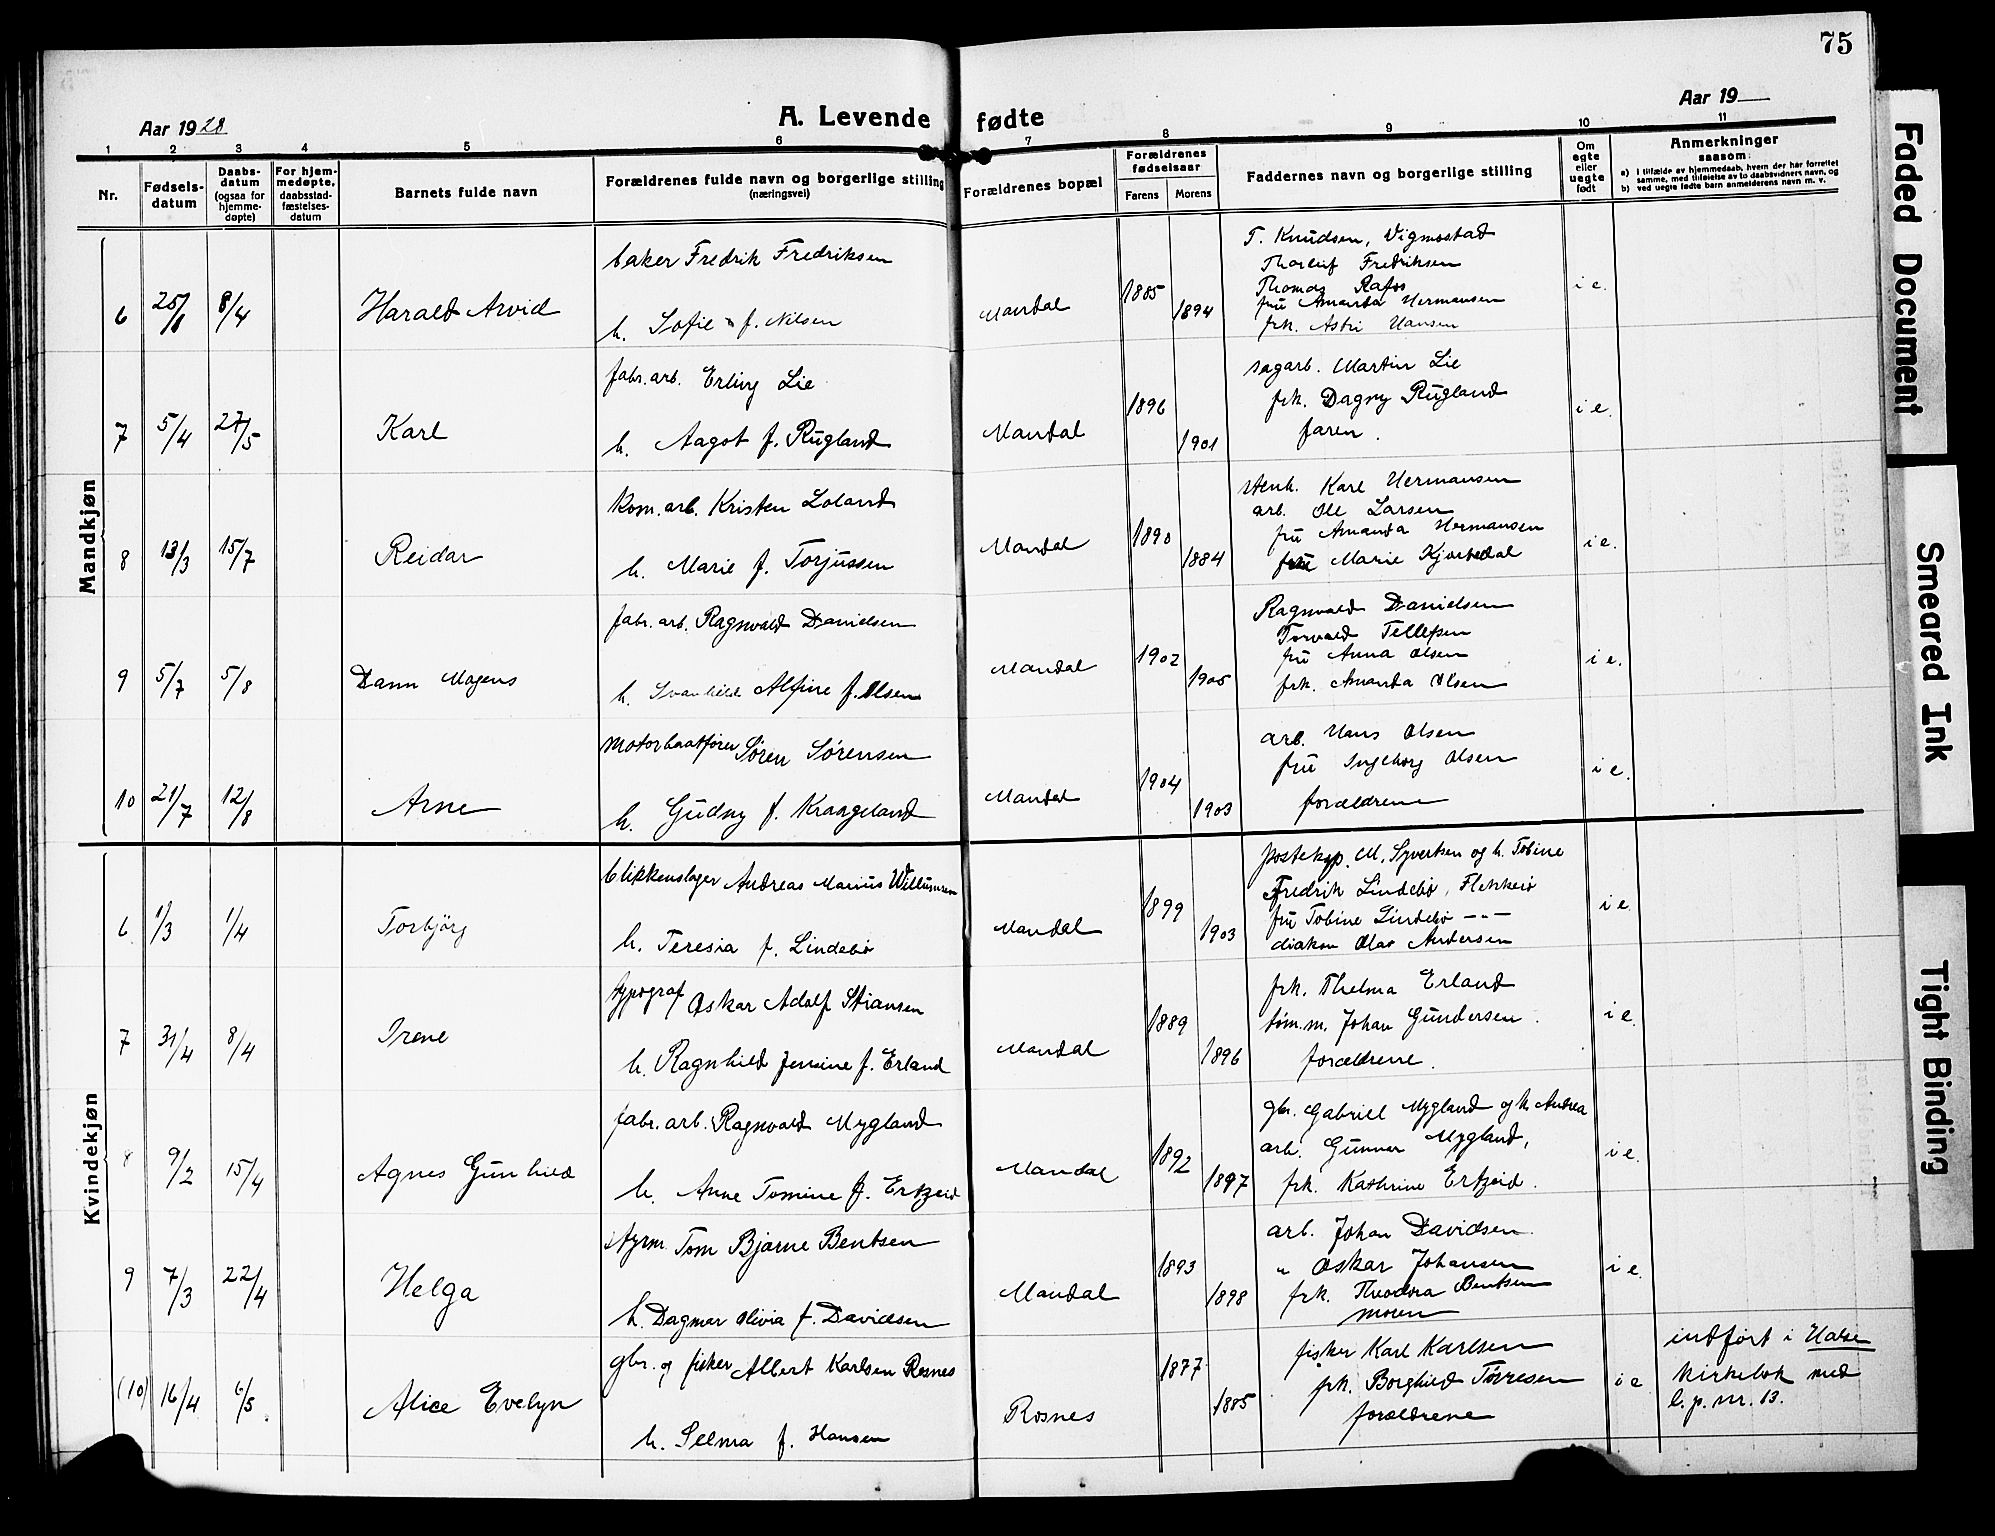 75
Aar 1928
A. Levende fødte
Aar 19
1 2 3 4 5 6 7 8 9 10 11
Nr.
Fødsels-
datum
Daabs-
datum
(ogsaa for
hjemme-
døpte)
For hjem-
medøpte,
daabsstad-
fæstelses-
datum
Barnets fulde navn
Forældrenes fulde navn og borgerlige stilling
(næringsvei)
Forældrenes bopæl
Forældrenes
fødselsaar
Farens Morens
Faddernes navn og borgerlige stilling
Om
egte
eller
uegte
født
Anmerkninger
saasom:
a) i tilfælde av hjemmedaab, hvem der har forrettet
samme, med tilføielse av to daabsvidners navn, og
b) ved uegte fødte barn anmelderens navn m. v.
Mandkjøn
6 25/1 8/4 Harald Arvid
baker Fredrik Fredriksen
h. Sofie f. Nilsen
Mandal 1885 1894
T. Knudsen, Vigmostad
Thorleif Fredriksen
Thomas Rafos
fru Amanda Hermansen
frk. Astri Hansen
i e.
7 5/4 27/5 Karl
fabr. arb. Erling Lie
h. Aagot f. Rugland
Mandal 1896 1901
sagarb. Martin Lie
frk. Dagny Rugland
faren.
i e.
8 13/3 15/7 Reidar
kom. arb. Kristen Loland
h. Marie f. Torjussen
Mandal 1890 1884
stenh. Karl Hermansen
arb. Ole Larsen
fru Amanda Hermansen
Marie
i e.
9 5/7 5/8 Dann Mogens
fabr. arb. Ragnvald Danielsen
h. Svanhilde Alfine f. Olsen
Mandal 1902 1905
Ragnvald Danielsen
Torvald Tellefsen
fru Anna Olsen
frk. Amanda Olsen
i e.
10 21/7 12/8 Arne
motorbaatfører Søren Sørensen
h. Gudny f. Kraageland
Mandal 1904 1903
arb. Hans Olsen
fru Ingeborg Olsen
forældrene
i e.
Kvindekjøn
6 1/3 1/4 Torbjörg
blikkenslager Andreas Marius Willumsen
h. Teresia f. Lindebø
Mandal 1899 1903
posteksp. M. Syvertsen og h. Tobine
Fredrik Lindebø, Flekkerø
fru Tobine Lindebø - - -
diakon Olav Andersen
i e.
7 31/4 8/4 Irene
typograf Oskar Adolf Stiansen
h. Ragnhild Jensine f. Erland
Mandal 1889 1896
frk. Thelma Erland
tøm.m. Johan Gundersen.
forældrene.
i e.
8 9/2 15/4 Agnes Gunhild
fabr. arb. Ragnvald Mygland
h. Anne Tomine f. Ertzeid
Mandal 1892 1897
gbr. Gabriel Mygland og h. Andrea
arb. Gunnar Mygland,
frk. Kathrine Ertzeid.
i e.
9 7/3 22/4 Helga
styrm. Tom Bjarne Bentsen
h. Dagmar Olivia f. Davidsen
Mandal 1893 1898
arb. Johan Davidsen.
" Oskar Johansen
frk. Theodora Bentsen
moren
i e.
(10) 16/4 6/5 Alice Evelyn
gbr. og fisker Albert Karlsen Rosnes
h. Selma f. Hansen
Rosnes 1877 1885
fisker Karl Karlsen
frk. Borghild Tørresen
forældrene
i e
indført i Halse
kirkebok med
l. p. nr. 13.
Faded Document
Smeared Ink
Tight Binding